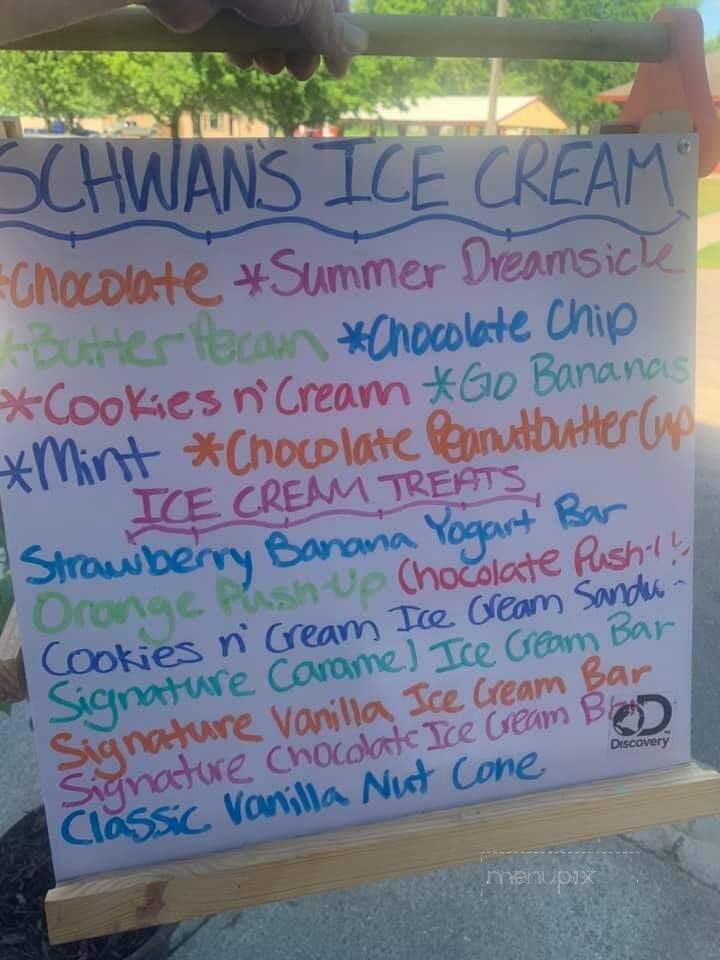 SCHWAN'S ICE CREAM
*Chocolate *Summer Dreamsicle
*Butter Pecan *Chocolate Chip
*Cookies n' Cream *Go Bananas
*Mint *Chocolate Peanutbutter Cup
ICE CREAM TREATS
Strawberry Banana Yogart Bar
Orange Push-Up Chocolate Push-
Cookies n' Cream Ice Cream
Signature Caramel Ice Cream Bar
Signature Vanilla Ice Cream Bar
Signature Chocolate Ice Cream Bar
Classic Vanilla Nut Cone
D
Discovery
menupix